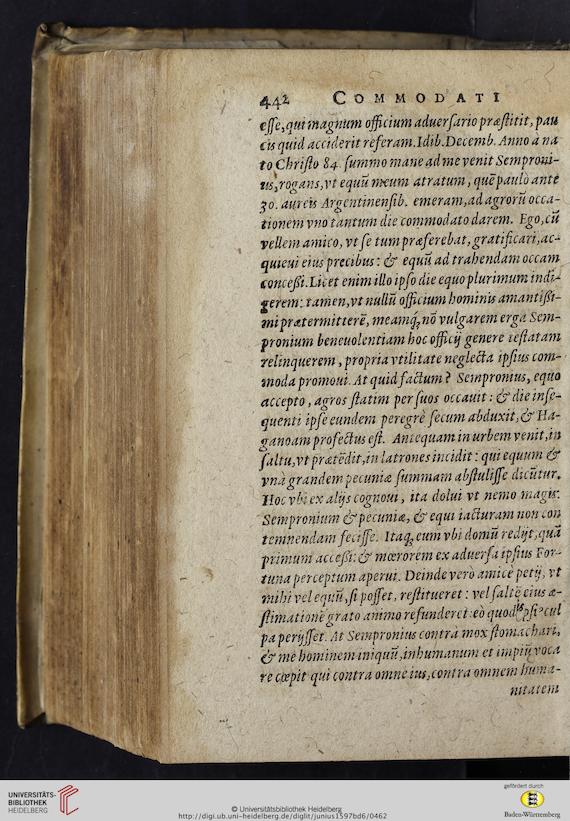 442 COMMODATI
eſſe, qui magnum officium aduerſario præſtitit, pau
cis quid acciderit referam. Idib. Decemb. Anno a na
to Chriſto 84. ſummo mane ad me venit Semproni-
us, rogans, vt equũ meum atratum, quẽ paulò ante
30. aureis Argentinenſib. emeram, ad agrorũ occa-
tionem vno tantum die commodato darem. Ego, cũ
vellem amico, vt ſe tum præferebat, gratificari, ac-
quieui eius precibus: & equũ ad trahendam occam
conceßi. Licet enim illo ipſo die equo plurimum indi-
gerem: tamen, vt nullũ officium hominis amantißi-
mi prætermitterẽ, meamq́; nõ vulgarem erga Sem-
pronium beneuolentiam hoc officij genere teſtatam
relinquerem, propria vtilitate neglecta ipſius com-
moda promoui. At quid factum? Sempronius, equo
accepto, agros ſtatim per ſuos occauit: & die inſe-
quenti ipſe eundem peregrè ſecum abduxit, & Ha-
ganoam profectus eſt. Antequam in urbem venit, in
ſaltu, vt prætẽdit, in latrones incidit: qui equum &
vnà grandem pecuniæ ſummam abſtuliſſe dicũtur.
Hoc vbi ex alijs cognoui, ita dolui vt nemo magis:
Sempronium & pecuniæ, & equi iacturam non con
temnendam feciſſe. Itaq; eum vbi domũ redijt, quã
primum acceßi: & mœrorem ex aduerſa ipſius For-
tuna perceptum aperui. Deinde verò amicè petij, vt
mihi vel equũ, ſi poſſet, reſtitueret: vel ſaltẽ eius æ-
ſtimationẽ grato animo refunderet: eò quod ipſi⁹ cul
pa perijſſet. At Sempronius contrà mox ſtomachari,
& me hominem iniquũ, inhumanum et impiũ voca
re cœpit qui contra omne ius, contra omnem huma-
nitatem
UNIVERSITÄTS-
BIBLIOTHEK
HEIDELBERG
© Universitätsbibliothek Heidelberg
http://digi.ub.uni-heidelberg.de/diglit/junius1597bd6/0462
gefördert durch
Baden-Württemberg